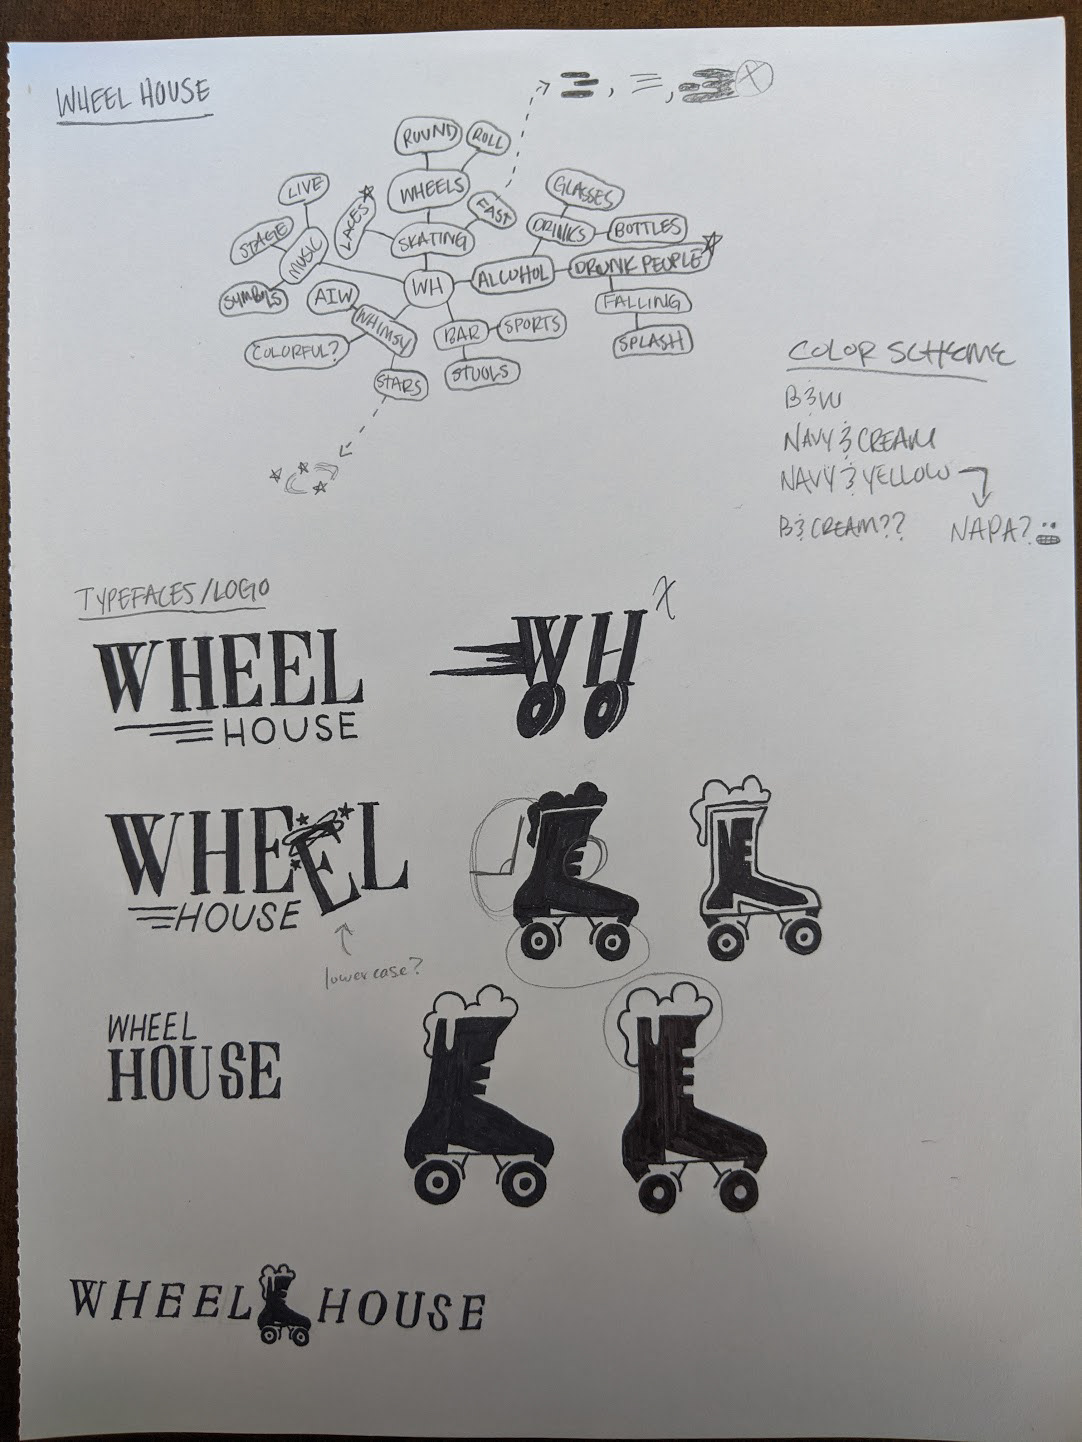 WHEEL HOUSE
ROUND
ROLL
WHEELS
LIVE
LACES
FAST
GLASSES
STAGE
MUSIC
SKATING
DRINKS
BOTTLES
SYMBOLS
AIW
WH
ALCOHOL
DRUNK PEOPLE
WHIMSY
BAR
SPORTS
FALLING
COLORFUL?
STOOLS
SPLASH
STARS
COLOR SCHEME
B&W
NAVY & CREAM
NAVY & YELLOW
B & CREAM??
NAPA?
TYPEFACES/LOGO
WHEEL
HOUSE
WH
X
WHEEL
HOUSE
lowercase?
WHEEL
HOUSE
WHEEL HOUSE